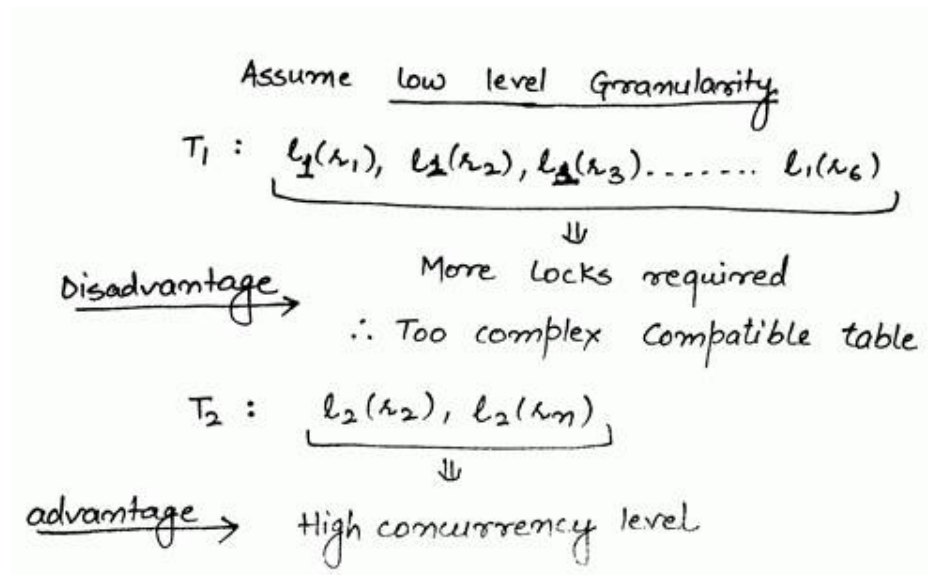 Assume low level Granularity
T₁ : l₁(r₁), l₁(r₂), l₁(r₃)........ l₁(r₆)
⇓
More locks required
Disadvantage →
∴ Too complex Compatible table
T₂ : l₂(r₂), l₂(rₙ)
⇓
advantage → High concurrency level